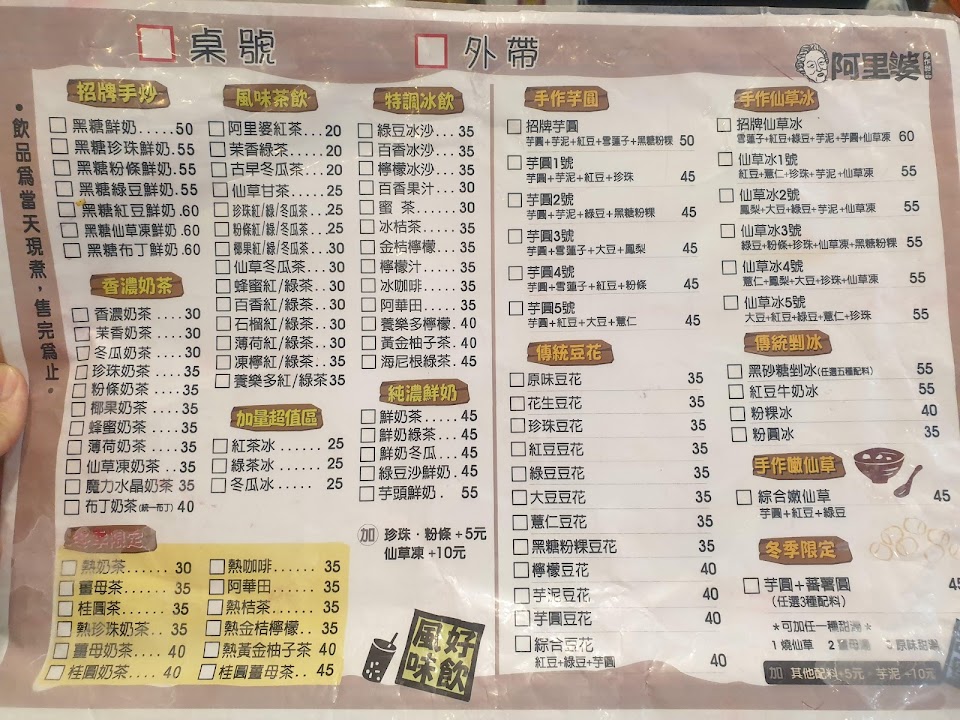 桌號
外帶
阿里婆
•飲品為當天現煮，售完為止。
招牌手炒
黑糖鮮奶.....50
黑糖珍珠鮮奶.55
黑糖粉條鮮奶.55
黑糖綠豆鮮奶.55
黑糖紅豆鮮奶.60
黑糖仙草凍鮮奶.60
黑糖布丁鮮奶.60
香濃奶茶
香濃奶茶....30
茉香奶茶....30
冬瓜奶茶....30
珍珠奶茶....35
粉條奶茶....35
椰果奶茶....35
蜂蜜奶茶....35
薄荷奶茶....35
仙草凍奶茶..35
魔力水晶奶茶 35
布丁奶茶(統一布丁) 40
風味茶飲
阿里婆紅茶...20
茉香綠茶....20
古早冬瓜茶..20
仙草甘茶....25
珍珠紅/綠/冬瓜茶...25
粉條紅/綠/冬瓜茶...25
椰果紅/綠/冬瓜茶...30
仙草冬瓜茶..30
蜂蜜紅/綠茶..30
百香紅/綠茶..30
石榴紅/綠茶..35
薄荷紅/綠茶..30
凍檸紅/綠茶..35
養樂多紅/綠茶35
加量超值區
紅茶冰.....25
綠茶冰.....25
冬瓜冰.....25
特調冰飲
綠豆冰沙...35
百香冰沙...35
檸檬冰沙...35
百香果汁...30
蜜 茶.....30
冰桔茶....30
金桔檸檬...30
檸檬汁....35
冰咖啡....35
阿華田....35
養樂多檸檬.40
黃金柚子茶.40
海尼根綠茶.45
純濃鮮奶
鮮奶茶....45
鮮奶綠茶...45
鮮奶冬瓜...45
綠豆沙鮮奶.45
芋頭鮮奶..55
加 珍珠・粉條+5元
仙草凍+10元
冬季限定
熱奶茶......30
薑母茶......35
桂圓茶......35
熱珍珠奶茶..35
薑母奶茶....40
桂圓奶茶....40
熱咖啡......35
阿華田......35
熱桔茶......35
熱金桔檸檬..35
熱黃金柚子茶 40
桂圓薑母茶..45
好飲
風味
手作芋圓
招牌芋圓
芋圓+芋泥+紅豆+雪蓮子+黑糖粉粿 50
芋圓1號
芋圓+芋泥+紅豆+珍珠 45
芋圓2號
芋圓+芋泥+綠豆+黑糖粉粿 45
芋圓3號
芋圓+雪蓮子+大豆+鳳梨 45
芋圓4號
芋圓+雪蓮子+紅豆+粉條 45
芋圓5號
芋圓+紅豆+大豆+薏仁 45
傳統豆花
原味豆花 35
花生豆花 35
珍珠豆花 35
紅豆豆花 35
綠豆豆花 35
大豆豆花 35
薏仁豆花 35
黑糖粉粿豆花 35
檸檬豆花 40
芋泥豆花 40
芋圓豆花 40
綜合豆花
紅豆+綠豆+芋圓 40
手作仙草冰
招牌仙草冰
雪蓮子+紅豆+綠豆+芋泥+芋圓+仙草凍 60
仙草冰1號
紅豆+薏仁+珍珠+芋泥+仙草凍 55
仙草冰2號
鳳梨+大豆+綠豆+芋泥+仙草凍 55
仙草冰3號
綠豆+粉條+珍珠+仙草凍+黑糖粉粿 55
仙草冰4號
薏仁+鳳梨+大豆+珍珠+仙草凍 55
仙草冰5號
大豆+紅豆+綠豆+薏仁+珍珠 55
傳統剉冰
黑砂糖剉冰(任選五種配料) 55
紅豆牛奶冰 55
粉粿冰 40
粉圓冰 35
手作嫩仙草
綜合嫩仙草 45
芋圓+紅豆+綠豆
冬季限定
芋圓+蕃薯圓 45
(任選3種配料)
*可加任一種甜湯*
1 燒仙草 2 薑母湯 3 原味甜湯
加 其他配料+5元・芋泥+10元